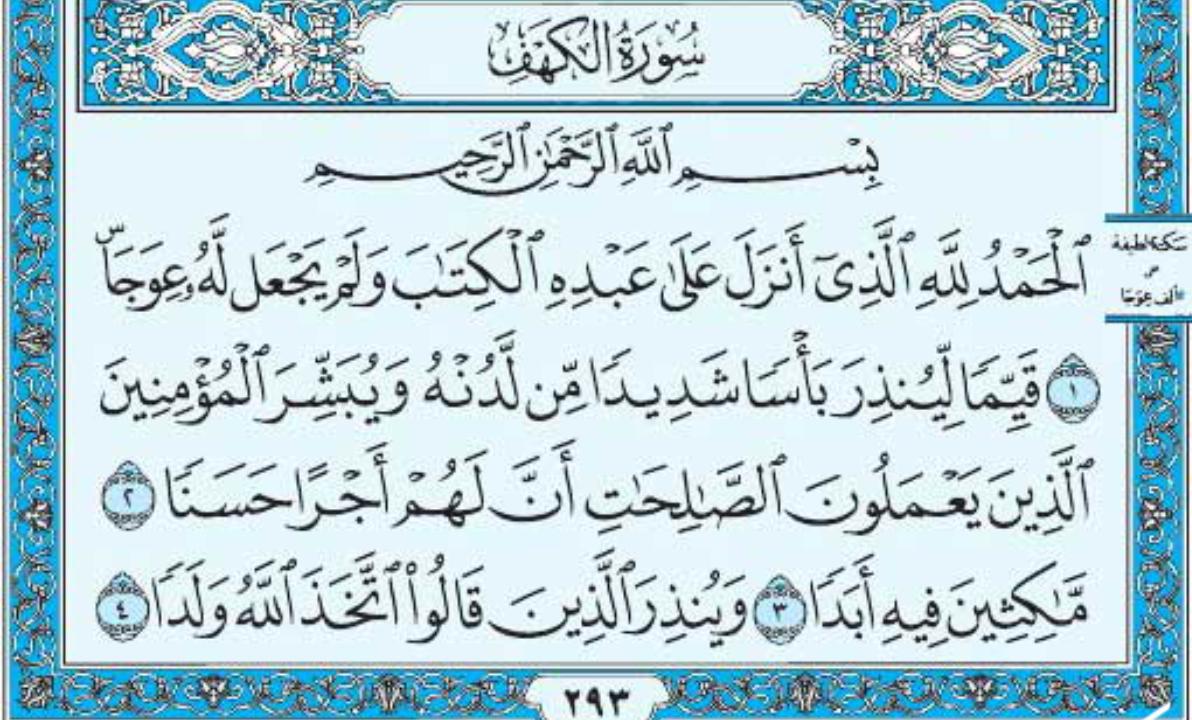 سُورَةُ الكَهْفِ
بِسْمِ ٱللَّهِ ٱلرَّحْمَٰنِ ٱلرَّحِيمِ
ٱلْحَمْدُ لِلَّهِ ٱلَّذِىٓ أَنزَلَ عَلَىٰ عَبْدِهِ ٱلْكِتَٰبَ وَلَمْ يَجْعَل لَّهُۥ عِوَجَاۜ
سكتة لطيفة
س
ألف عِوَجَا
١ قَيِّمًا لِّيُنذِرَ بَأْسًا شَدِيدًا مِّن لَّدُنْهُ وَيُبَشِّرَ ٱلْمُؤْمِنِينَ
ٱلَّذِينَ يَعْمَلُونَ ٱلصَّٰلِحَٰتِ أَنَّ لَهُمْ أَجْرًا حَسَنًا ٢
مَّٰكِثِينَ فِيهِ أَبَدًا ٣ وَيُنذِرَ ٱلَّذِينَ قَالُوا۟ ٱتَّخَذَ ٱللَّهُ وَلَدًا ٤
٢٩٣